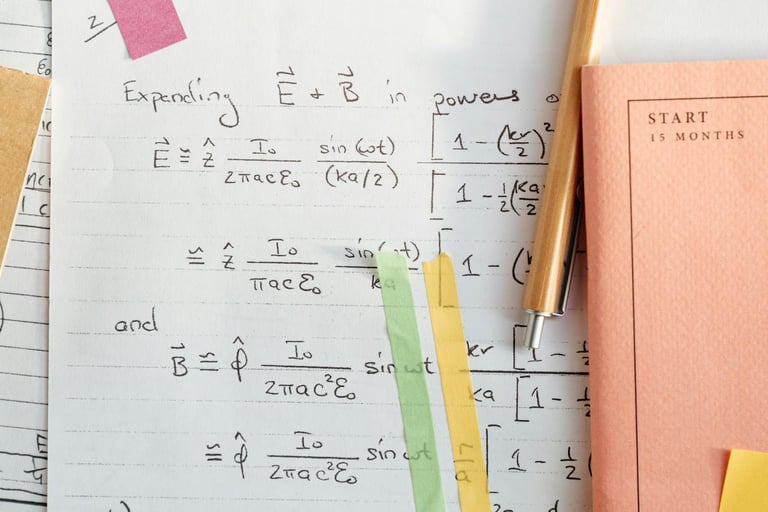 2
Expanding E⃗ + B⃗ in powers
E⃗ ≅ ẑ I₀/(2πacε₀) sin(ωt)/(ka/2) [1 - (kr/2)²/[1 - ½(ka/2
≅ ẑ I₀/(πacε₀) sin(ωt)/ka [1 - (
and
B⃗ ≅ φ̂ I₀/(2πac²ε₀) sin ωt kr/ka [1 - ½/[1 - ½
≅ φ̂ I₀/(2πac²ε₀) sin ωt [1 - ½(
START
15 MONTHS